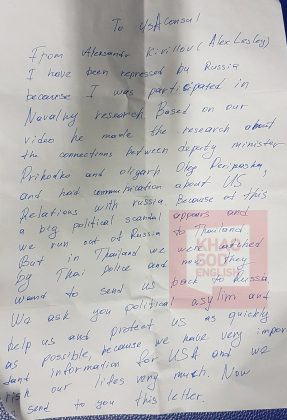 To USA Consul
From Aleksandr Kirillov (Alex Lesley)
I have been repressed by Russia
becaurse I was participated in
Navalny research. Based on our
video he made the research about
the connections between deputy minister
Prihodko and oligarh Oleg Deripaska,
and had communication about US
Relations with russia. Because of this
a big political scandal appears and
we run out of Russia to Thailand
But in Thailand we were catched
by Thai police and now they
wannd to send us back to Russia
We ask you political asylim and
help us and protect us as quickly
as possible, because we have very impor
tand information for USA and we
risk our lifes very much. Now
send to you this letter.
KHAO
SOD
ENGLISH